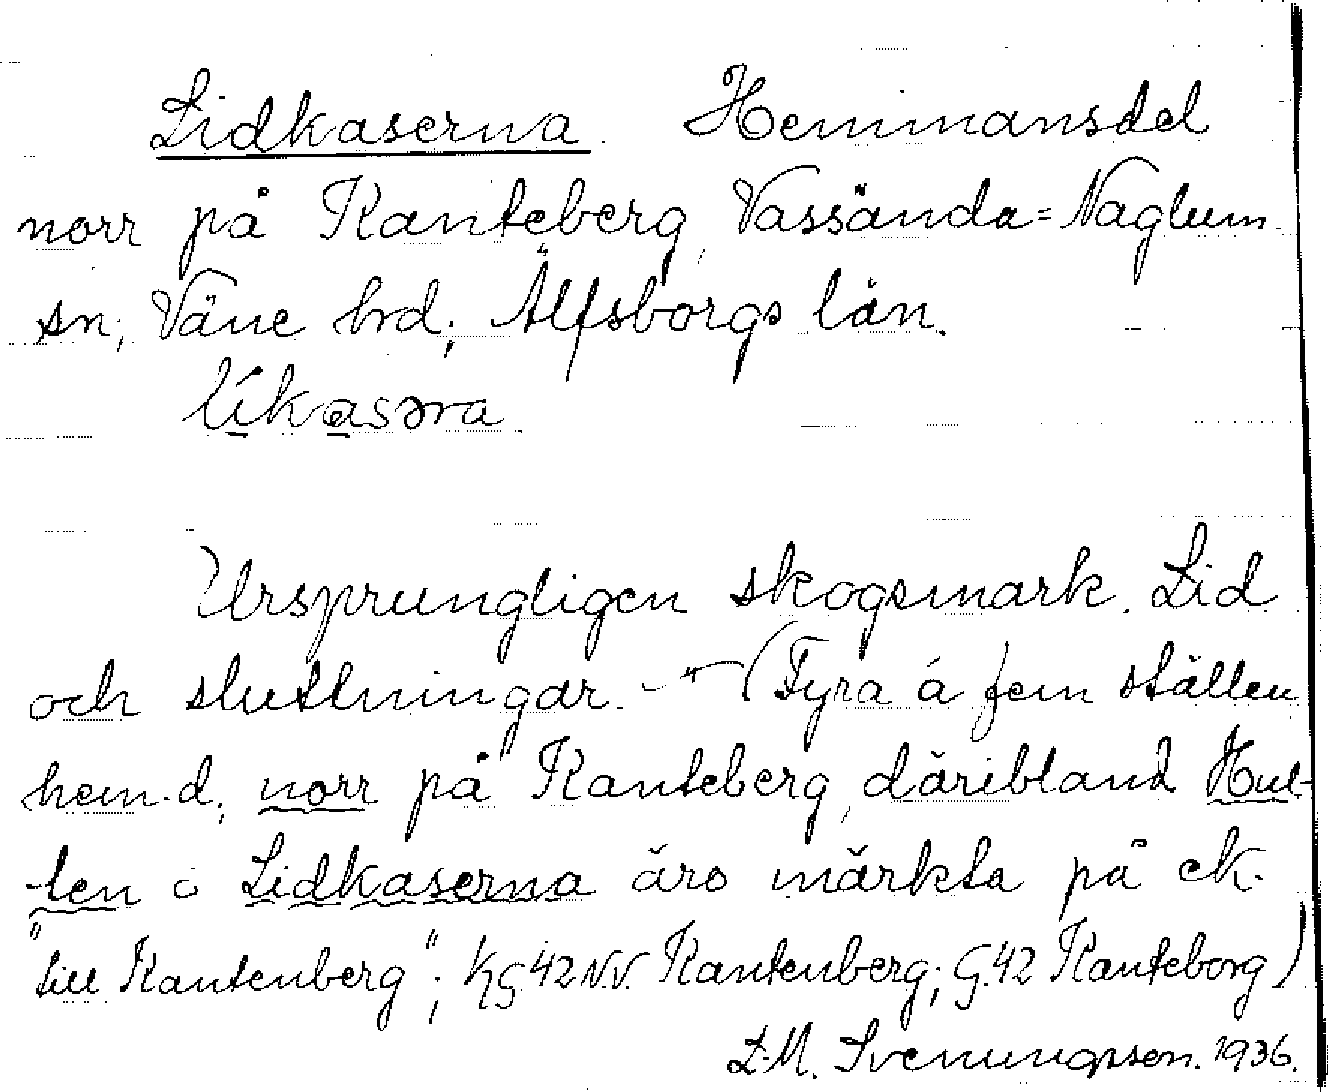 Lidkaserna. Hemmansdel
norr på Ranteberg, Vassända=Naglum
sn, Väne hrd, Älfsborgs län.
líkasəra
Ursprungligen skogsmark. Lid
och sluttningar. - " - (Fyra á fem ställen
hem.d. norr på Ranteberg, däribland Hul-
ten o Lidkaserna äro märkta på ek.
"till Rantenberg"; KG 42 N.V. Rantenberg; G.42 Ranteborg)
L.M. Svenungsson. 1936.